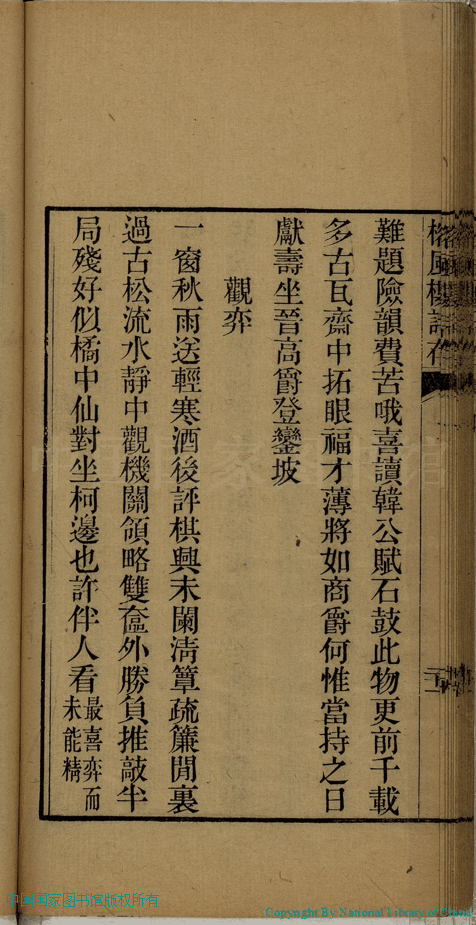 難題險韻費苦哦喜讀韓公賦石鼓此物更前千載
多古瓦齋中拓眼福才薄將如商爵何惟當持之日
獻壽坐晉高爵登鑾坡
觀弈
一窗秋雨送輕寒酒後評棋興未闌淸簟疏簾閒裏
過古松流水靜中觀機關領略雙奩外勝負推敲半
局殘好似橘中仙對坐柯邊也許伴人看最喜弈而
未能精
中国国家图书馆版权所有
Copyright By National Library of China